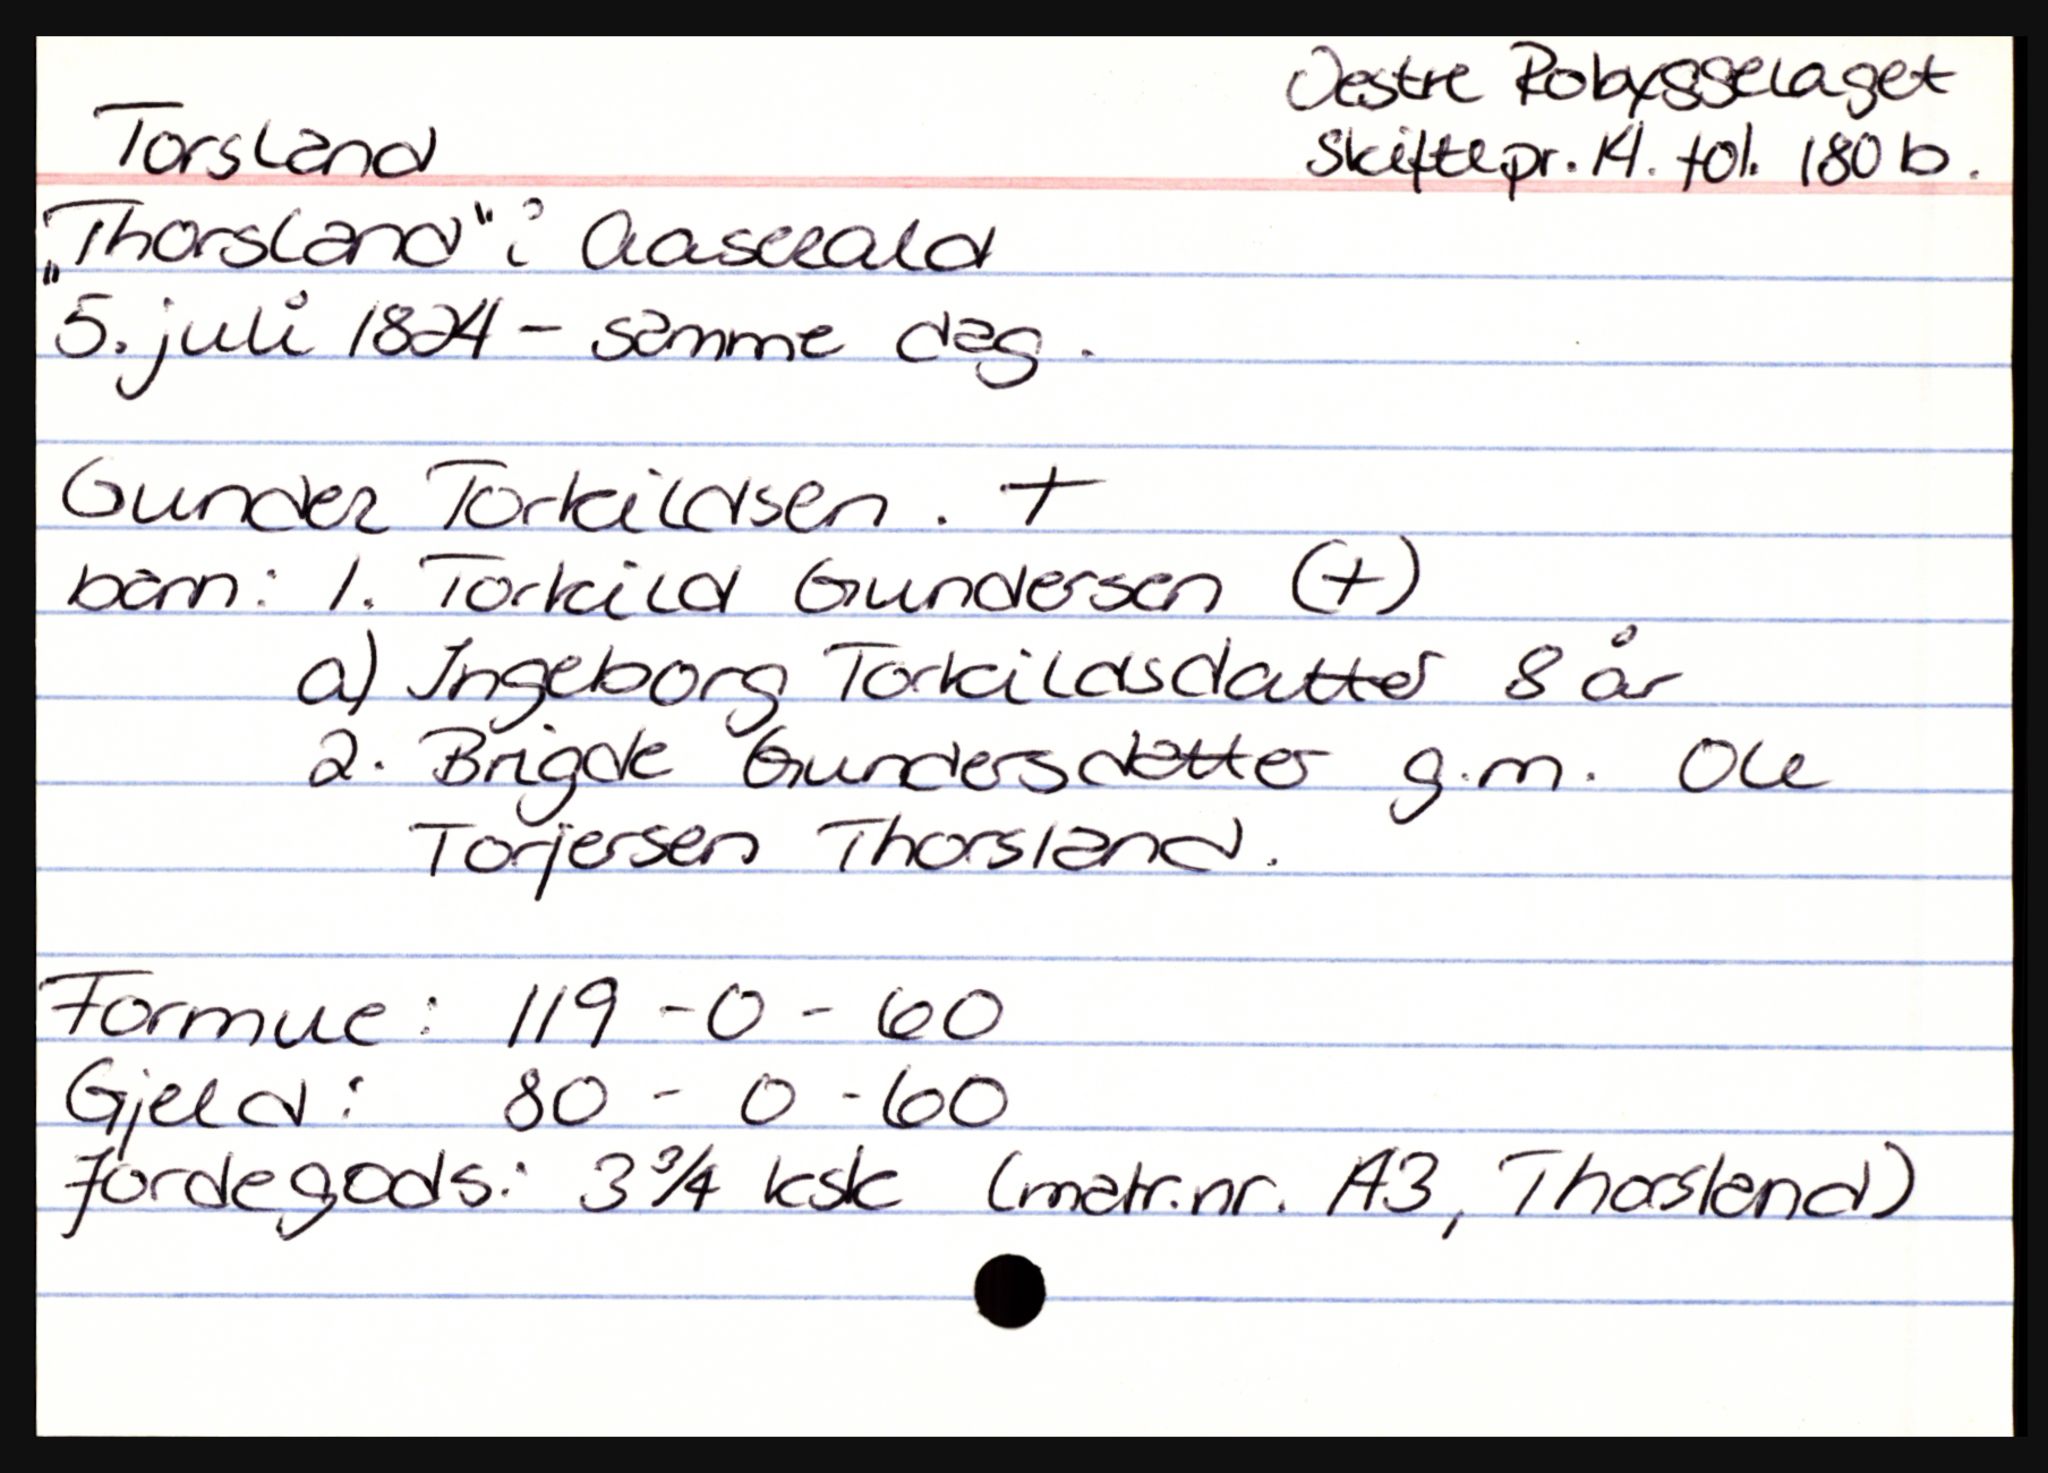 Oestre Robyggelaget
Torsland
Skiftepr. 14. fol. 180 b.
„Thorsland" i Aaserald
5. juli 1824 - samme dag.
Gunder Torkildsen. +
barn: 1. Torkild Gundersen (+)
a) Ingeborg Torkildsdatter 8 år
2. Brigde Gundersdatter g.m. Ole
Torjersen Thorsland.
Formue: 119 - 0 - 60
Gjeld: 80 - 0 - 60
Jordegods: 3 3/4 ksk (matr.nr. A3, Thorsland)